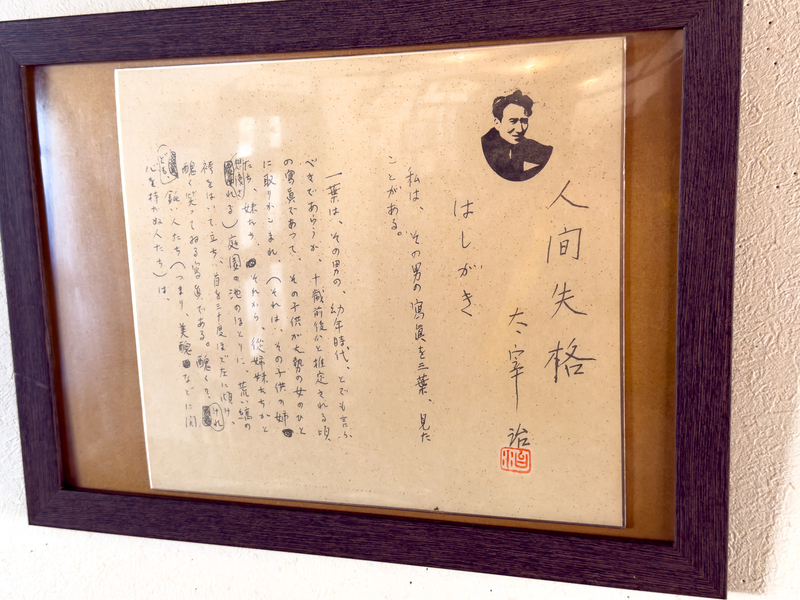 人間失格
太宰治
治
はしがき
私は、その男の寫眞を三葉、見た
ことがある。
一葉は、その男の、幼年時代、とでも言ふ
べきであらうか、十歳前後かと推定される頃
の寫眞であつて、その子供が大勢の女のひと
に取りかこまれ、(それは、その子供の姉
たち、妹たち、それから、從姉妹たちかと
想像される)庭園の池のほとりに、荒い縞の
袴をはいて立ち、首を三十度ほど左に傾け、
醜く笑つてゐる寫眞である。醜く?けれ
ども、鈍い人たち(つまり、美醜などに関
心を持たぬ人たち)は、